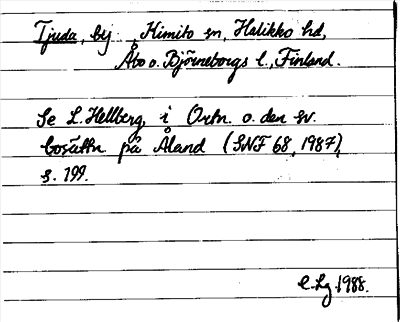 Tjuda, by, Kimito sn, Halikko hd,
Åbo o. Björneborgs l., Finland.
Se L. Hellberg i Ortn. o. den sv.
bosättn på Åland (SNF 68, 1987),
s. 199.
E. Lg 1988.